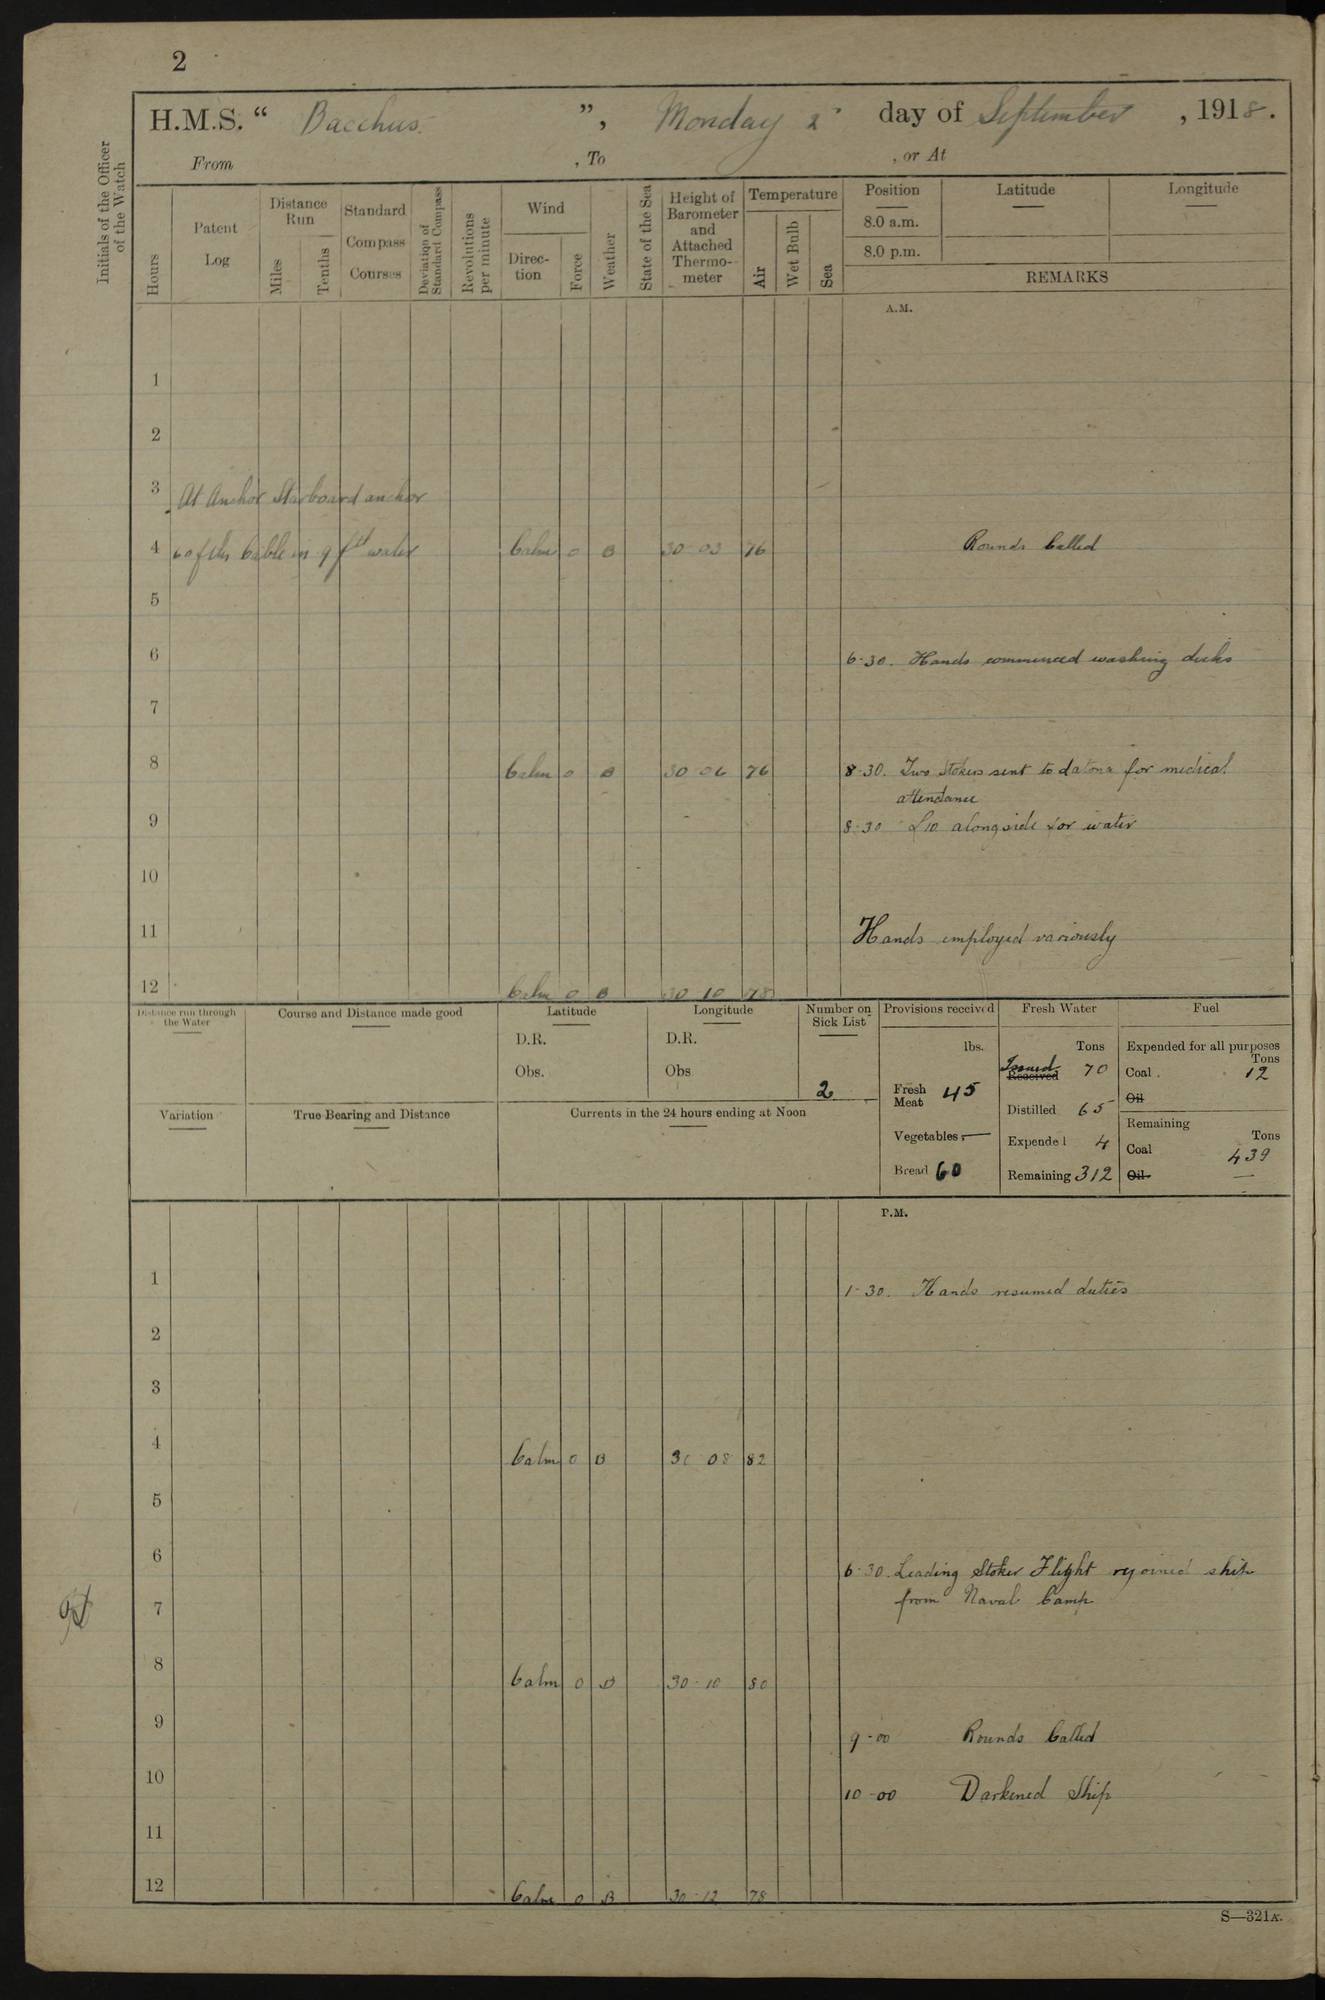 2
H.M.S. “ Bacchus ”, Monday 2 day of September , 1918.
From , To , or At
Initials of the Officer of the Watch
Hours
Patent Log
Distance Run
Miles
Tenths
Standard Compass Courses
Deviation of Standard Compass
Revolutions per minute
Wind
Direc-tion
Force
Weather
State of the Sea
Height of Barometer and Attached Thermo-meter
Temperature
Air
Wet Bulb
Sea
Position Latitude Longitude
8.0 a.m.
8.0 p.m.
REMARKS
A.M.
1
2
3 At Anchor Starboard anchor
4 60 fths Cable in 9 fth water Calm 0 B 30 03 76 Rounds Called
5
6 6-30. Hands commenced washing decks
7
8 Calm 0 B 30 06 76 8-30. Two Stokers sent to for medical
attendance
9 8-30 alongside for water
10
11 Hands employed variously
12 Calm 0 B 30 10 78
Distance run through the Water
Course and Distance made good
Latitude
D.R.
Obs.
Longitude
D.R.
Obs
Number on Sick List
2
Variation
True Bearing and Distance
Currents in the 24 hours ending at Noon
Provisions received
lbs.
Fresh Meat 45
Vegetables —
Bread 60
Fresh Water
Tons
Issued
Received 70
Distilled 65
Expended 4
Remaining 312
Fuel
Expended for all purposes
Tons
Coal 12
Oil
Remaining
Tons
Coal 439
Oil —
P.M.
1 1-30. Hands resumed duties
2
3
4 Calm 0 B 30 08 82
5
6 6-30. Leading Stoker Flight rejoined ship
7 from Naval Camp
8 Calm 0 B 30-10 80
9 9-00 Rounds Called
10 10-00 Darkened Ship
11
12 Calm 0 B 30-12 78
S—321A.